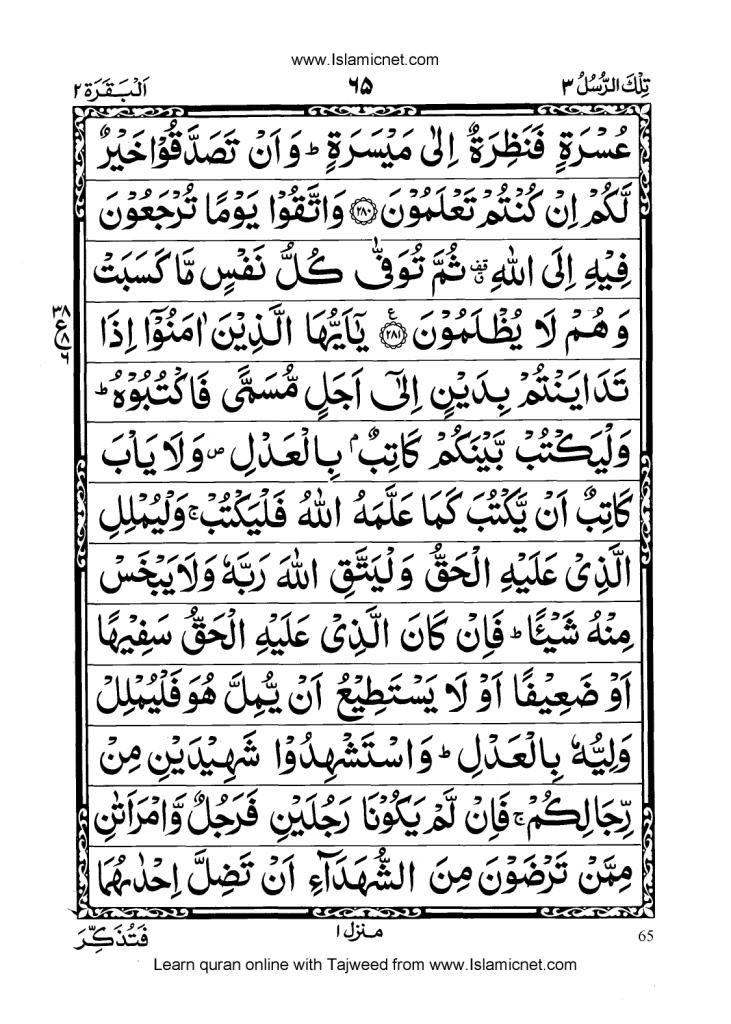 www.Islamicnet.com
تِلْكَ الرُّسُلُ ۳ ۶۵ اَلْبَقَرَة ۲
عُسْرَةٍ فَنَظِرَةٌ اِلٰى مَيْسَرَةٍ ؕ وَاَنْ تَصَدَّقُوْا خَيْرٌ
لَّكُمْ اِنْ كُنْتُمْ تَعْلَمُوْنَ ۝۲۸۰ وَاتَّقُوْا يَوْمًا تُرْجَعُوْنَ
فِيْهِ اِلَى اللّٰهِ ۗ ثُمَّ تُوَفّٰى كُلُّ نَفْسٍ مَّا كَسَبَتْ
وَهُمْ لَا يُظْلَمُوْنَ ۝۲۸۱ يٰۤاَيُّهَا الَّذِيْنَ اٰمَنُوْۤا اِذَا
تَدَايَنْتُمْ بِدَيْنٍ اِلٰۤى اَجَلٍ مُّسَمًّى فَاكْتُبُوْهُ ؕ
وَلْيَكْتُبْ بَّيْنَكُمْ كَاتِبٌۢ بِالْعَدْلِ ۪ وَلَا يَاْبَ
كَاتِبٌ اَنْ يَّكْتُبَ كَمَا عَلَّمَهُ اللّٰهُ فَلْيَكْتُبْ ۚ وَلْيُمْلِلِ
الَّذِيْ عَلَيْهِ الْحَقُّ وَلْيَتَّقِ اللّٰهَ رَبَّهٗ وَلَا يَبْخَسْ
مِنْهُ شَيْئًا ؕ فَاِنْ كَانَ الَّذِيْ عَلَيْهِ الْحَقُّ سَفِيْهًا
اَوْ ضَعِيْفًا اَوْ لَا يَسْتَطِيْعُ اَنْ يُّمِلَّ هُوَ فَلْيُمْلِلْ
وَلِيُّهٗ بِالْعَدْلِ ؕ وَاسْتَشْهِدُوْا شَهِيْدَيْنِ مِنْ
رِّجَالِكُمْ ۚ فَاِنْ لَّمْ يَكُوْنَا رَجُلَيْنِ فَرَجُلٌ وَّامْرَاَتٰنِ
مِمَّنْ تَرْضَوْنَ مِنَ الشُّهَدَآءِ اَنْ تَضِلَّ اِحْدٰىهُمَا
۳۸
ع ۸
۶
منزل ۱
فَتُذَكِّرَ
65
Learn quran online with Tajweed from www.Islamicnet.com